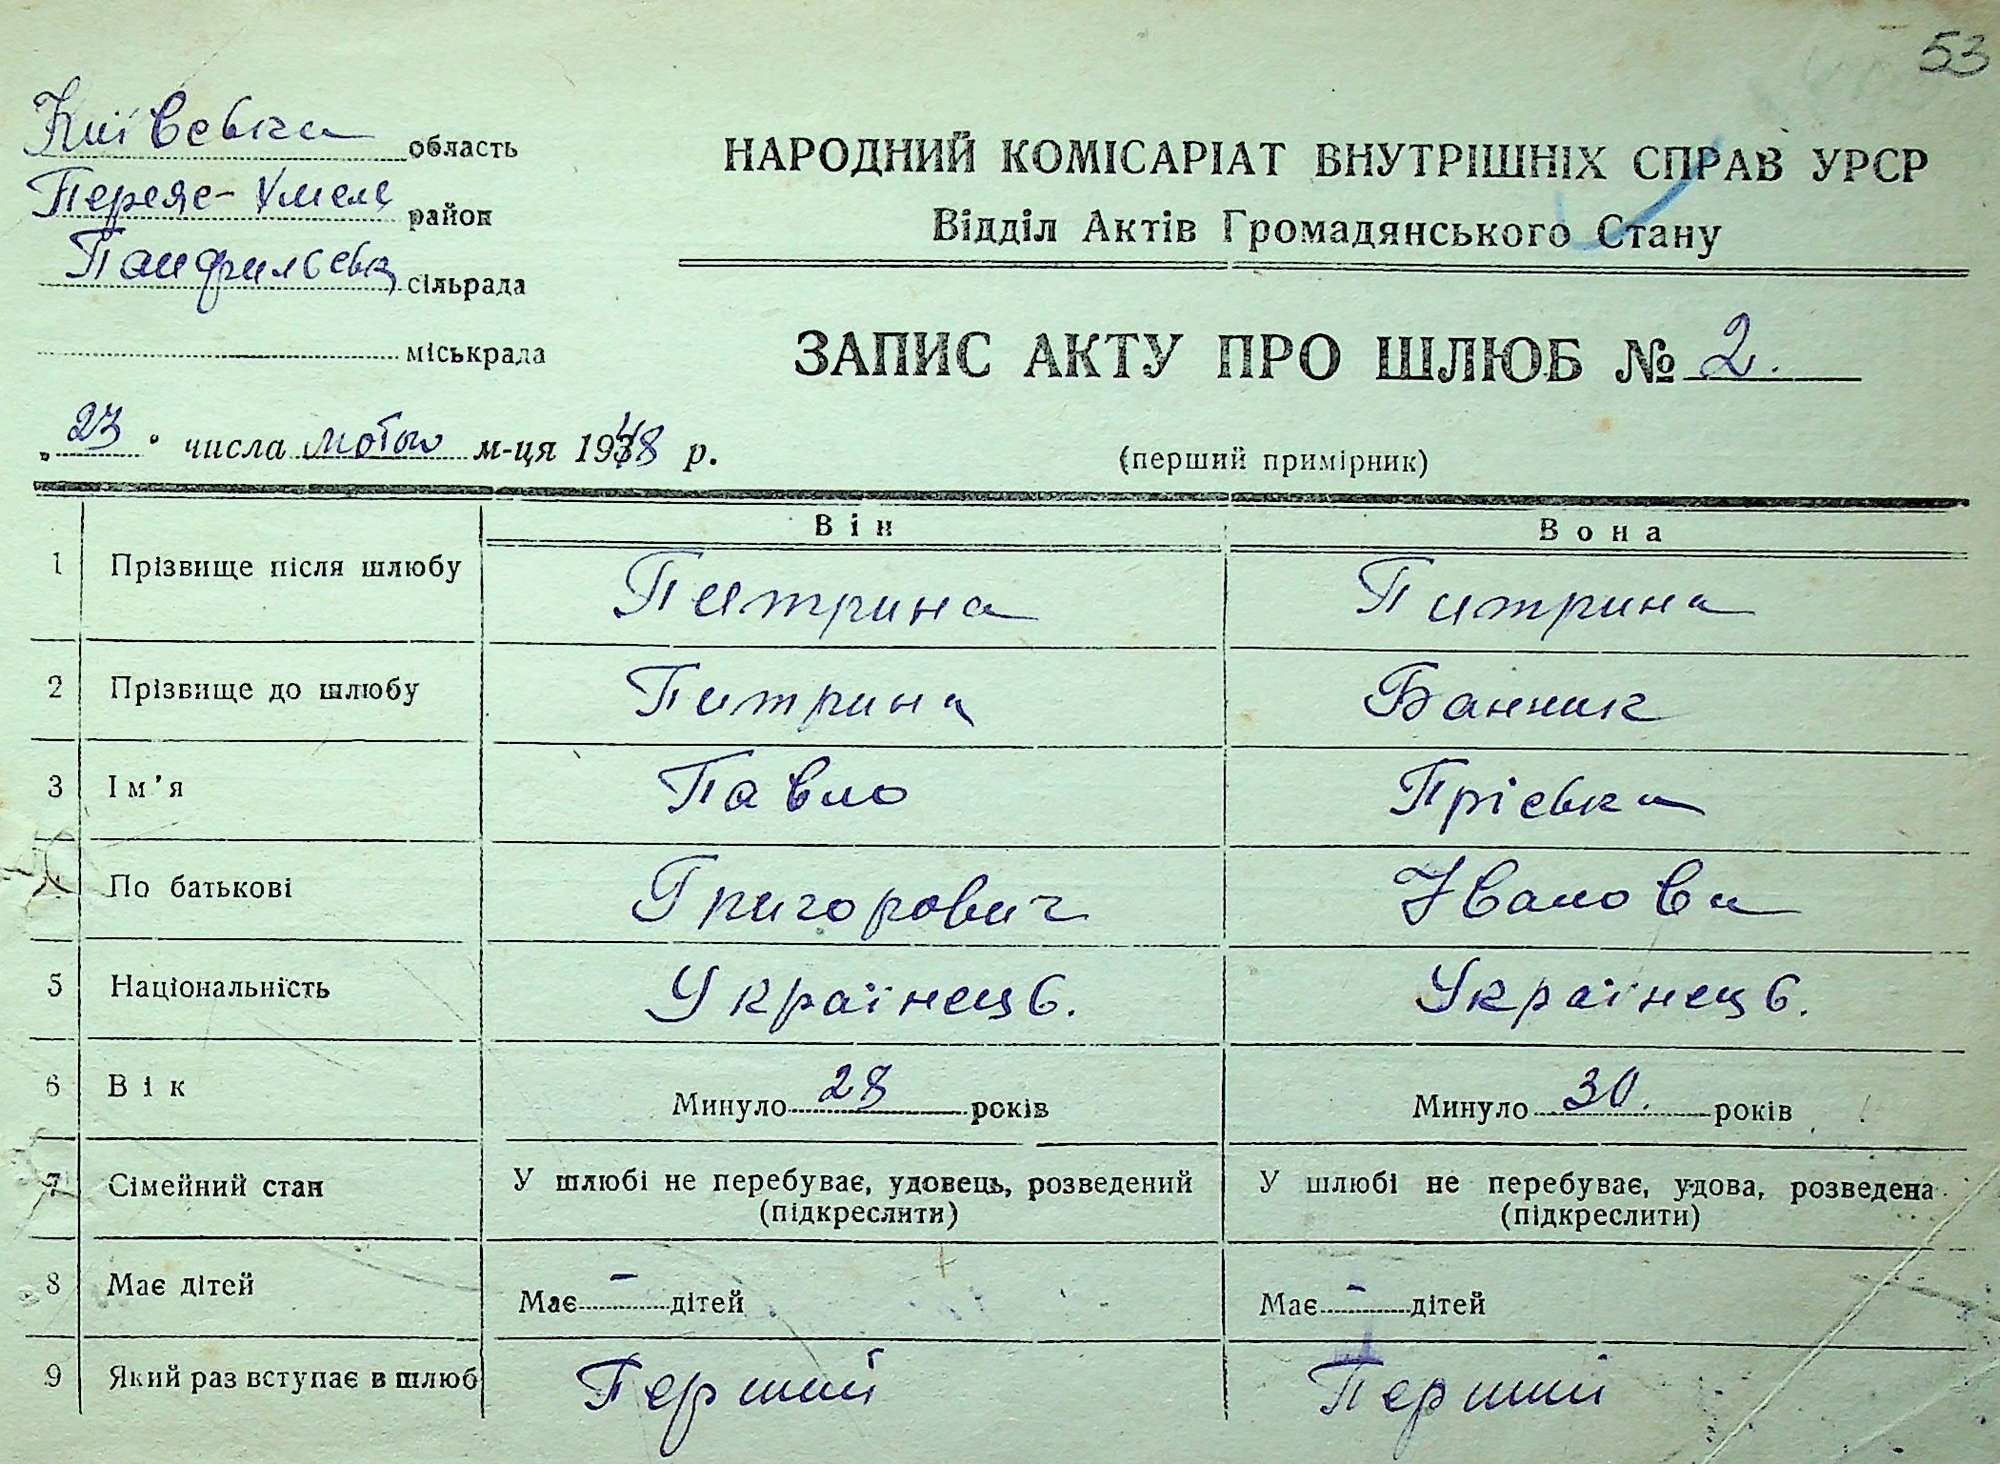 53
Київська область
Переяс-Хмель район
Панфильська сільрада
міськрада
НАРОДНИЙ КОМІСАРІАТ ВНУТРІШНІХ СПРАВ УРСР
Відділ Актів Громадянського Стану
ЗАПИС АКТУ ПРО ШЛЮБ № 2.
"23" числа лютого м-ця 1948 р.
(перший примірник)
Він Вона
1 Прізвище після шлюбу Питрина Питрина
2 Прізвище до шлюбу Питрина Банник
3 Ім'я Павло Пріська
4 По батькові Григорович Івановна
5 Національність Українець. Українець.
6 Вік Минуло 28 років Минуло 30. років
7 Сімейний стан У шлюбі не перебуває, удовець, розведений (підкреслити) У шлюбі не перебуває, удова, розведена (підкреслити)
8 Має дітей Має - дітей Має - дітей
9 Який раз вступає в шлюб Перший Перший